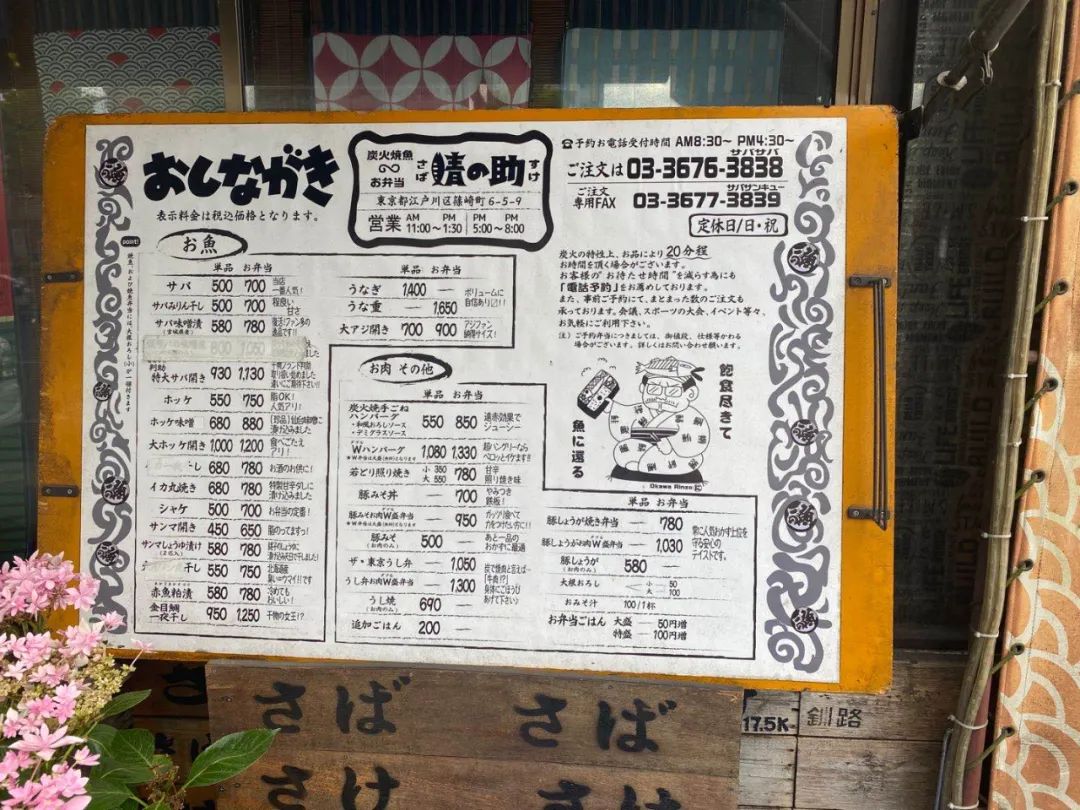 おしながき
表示料金は税込価格となります。
炭火焼魚
お弁当
さば 鯖の助 すけ
東京都江戸川区篠崎町6-5-9
営業 AM 11:00～PM 1:30 PM 5:00～PM 8:00
☎予約お電話受付時間 AM8:30～ PM4:30～
サバサバ
ご注文は 03-3676-3838
サバサンキュー
ご注文専用FAX 03-3677-3839
定休日/日・祝
炭火の特性上、お品により20分程
お時間を頂く場合がございます。
お客様の"お持たせ時間"を減らす為にも
「電話予約」をお薦めしております。
また、事前ご予約にて、まとまった数のご注文も
承っております。会議、スポーツの大会、イベント等々、
お気軽にご利用下さい。
注）ご予約弁当につきましては、御値段、仕様等かわる
場合がございます。詳しくはお問い合わせ願います。
飽食尽きて
魚に還る
Okawa Rinzo
point!
焼魚、および焼魚弁当には、大根おろし(小)が一個付きます
お魚
単品 お弁当
サバ 500 700 当店一番人気!
サバみりん干し 500 700 程良い甘さ
サバ味噌漬 580 780
(宮城県産)
特大サバ開き 930 1,130
ホッケ 550 750 脂OK!人気アリ!
ホッケ味噌 680 880
大ホッケ開き 1,000 1,200 食べごたえアリ!
干し 680 780 お酒のお供に!
イカ丸焼き 680 780 特製甘辛ダレに漬け込みました
シャケ 500 700 お弁当の定番!
サンマ開き 450 650 脂のってますっ!
サンマしょうゆ漬け 580 780
干し 550 750 北海道産
赤魚粕漬 580 780 冷めてもおいしい!
金目鯛一夜干し 950 1,250 干物の女王!?
単品 お弁当
うなぎ 1,400 —
うな重 — 1,650
ボリュームに自信あり
大アジ開き 700 900 アジファン納得サイズ!
お肉 その他
単品 お弁当
炭火焼手ごねハンバーグ 550 850 遠赤効果でジューシー
・和風おろしソース
・デミグラスソース
Wハンバーグ 1,080 1,330 超ハングリーならペロッとイケます!!
若どり照り焼き 小 350 大 550 780 甘辛照り焼き味
豚みそ丼 — 700 やみつき鉄板!
豚みそお肉W盛弁当 — 950
豚みそ 500 — あと一品のおかずに最適
(お肉のみ)
ザ・東京うし弁 — 1,050
うし弁お肉W盛弁当 — 1,300
うし焼 690 —
(お肉のみ)
追加ごはん 200 —
単品 お弁当
豚しょうが焼き弁当 — 780
豚しょうがお肉W盛弁当 — 1,030
豚しょうが 580 —
(お肉のみ)
常に人気おかず上位を守る安心のテイストです。
大根おろし 小 — 50
大 — 100
おみそ汁 100/1杯
お弁当ごはん 大盛 — 50円増
特盛 — 100円増
さば さば
17.5K 釧路
さけ さけ